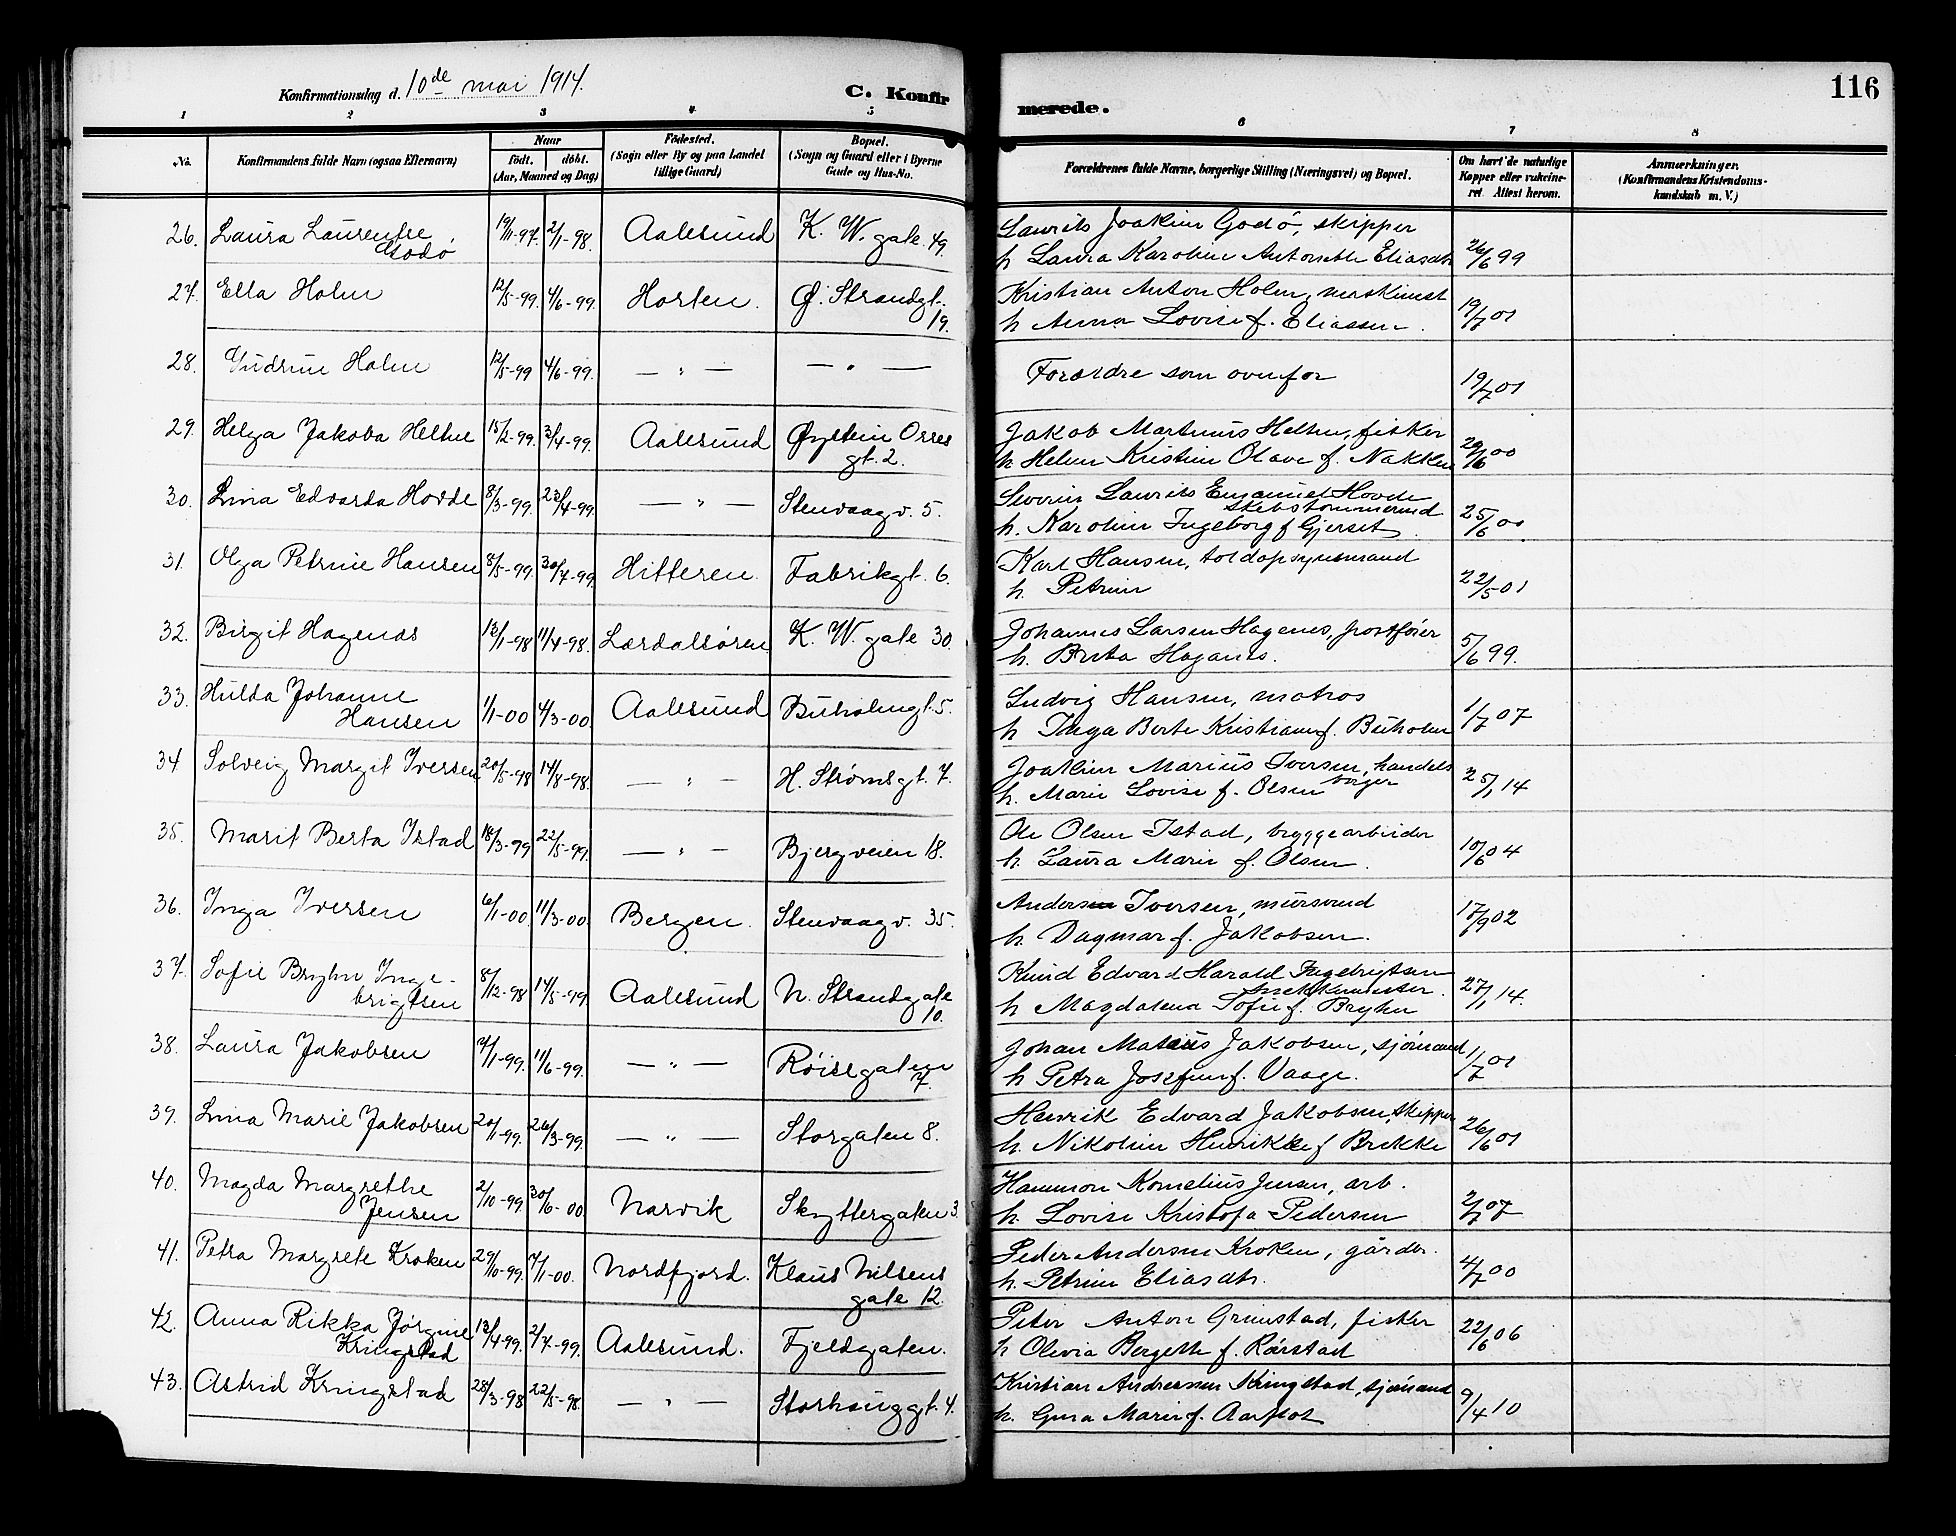 116
Konfirmationsdag d. 10de mai 1914.
C. Konfirmerede.
1 2 3 4 5 6 7 8
No.
Konfirmandens fulde Navn (ogsaa Efternavn)
Naar
født. døbt.
(Aar, Maaned og Dag)
Fødested.
(Sogn eller By og paa Landet
tillige Gaard)
Bopæl.
(Sogn og Gaard eller i Byerne
Gade og Hus-No.
Forældrenes fulde Navne, borgerlige Stilling (Næringsvei) og Bopæl.
Om havt de naturlige
Kopper eller vakcine-
ret Attest herom.
Anmærkninger.
(Konfirmandens Kristendoms-
kundskab m. V.)
26. Laura Laurentse Godø 19/11-97. 2/1-98. Aalesund K. W. gate 49. Laurits Joakim Godø, skipper
h Laura Karoline Antonette Eliasdtr 26/6 99
27. Ella Holm 12/5-99. 4/6-99. Horten. Ø. Strandgt. 19. Kristian Anton Holm, maskinist
h Anna Lovise f. Eliassen. 19/7 01
28. Gudrun Holm 12/5-99 4/6-99. — " — — " — Forældre som ovenfor 19/7 01
29. Helga Jakoba Heltne 15/2-99. 3/4-99. Aalesund Øystein Orres gt. 2. Jakob Martinus Heltne, fisker
h Heline Kristine Olave f. Nakken 29/6 00
30. Lina Edvarda Hovde 8/3-99. 23/4-99. — " — Stenvaagv. 5. Severin Laurits Emanuel Hovde
skibstømmermd
h. Karoline Ingeborg f Gjerset 25/6 00
31. Olga Petrine Hansen 8/5-99. 30/7-99 Hitteren. Fabrikgt. 6. Karl Hansen, toldopsynsmand
h. Petrine 22/5 01
32. Birgit Hagenæs 13/1-98 11/4-98. Lærdalsøren K. W. gate 30. Johannes Larsen Hagenes, postfører
h. Brita Hagenes. 5/6 99.
33. Hulda Johanne Hansen 1/1-00 4/3-00. Aalesund Buholmgt. 5. Ludvig Hansen, matros
h Inga Berte Kristiane f. Buholm 1/7 07
34 Solveig Margit Iversen 20/5-98 14/8-98. — " — H. Strømsgt. 7. Joakim Marius Iversen, handels
borger
h. Marie Lovise f. Olsen 25/1 14
35. Marit Berta Istad 18/3-99 22/5-99. — " — Bjergveien 18. Ole Olsen Istad, bryggearbeider
h. Laura Marie f. Olsen. 10/6 04
36. Inga Iversen 6/1-00 11/3-00 Bergen. Stenvaagv. 35. Anders Iversen, mursvend
h. Dagmar f. Jakobsen. 17/9 02
37. Sofie Bryhn Inge-
brigtsen 8/12-98 14/5-99 Aalesund N. Strandgate 10. Knud Edvard Harald Ingebrigtsen
snekkermester.
h Magdalena Sofie f. Bryhn 27/1 14.
38. Laura Jakobsen 7/1-99. 11/6-99. — " — Røisegaten 7. Johan Matæus Jakobsen, sjømand
h Petra Josefine f. Vaage. 1/7 01
39. Lina Marie Jakobsen 20/1-99. 26/3-99. — " — Storgaten 8. Henrik Edvard Jakobsen, skipper
h. Nikoline Henrikke f Brekke 26/6 01
40. Magda Margrethe Jensen 2/10-99. 30/6-00 Narvik Skyttergaten 3. Hammon Kornelius Jensen, arb.
h. Lovise Kristofa Pedersen 2/7 07
41. Petra Margrete Kroken 29/10-99. 7/1-00. Nordfjord. Klaus Nilsens gate 12. Peder Andersen Kroken, gårdbr.
h. Petrine Eliasdtr. 4/7 00
42. Anna Rikka Jørgine Kringstad 13/4-99. 2/7-99. Aalesund. Fjeldgaten. Peter Anton Grimstad, fisker
h Olivia Bergette f. Rørstad 22/6 06
43. Astrid Kringstad 28/3-98 22/5-98. — " — Storhauggt. 4. Kristian Andreassen Kringstad, sjømand
h. Gura Marie f. Aarflot 9/4 10